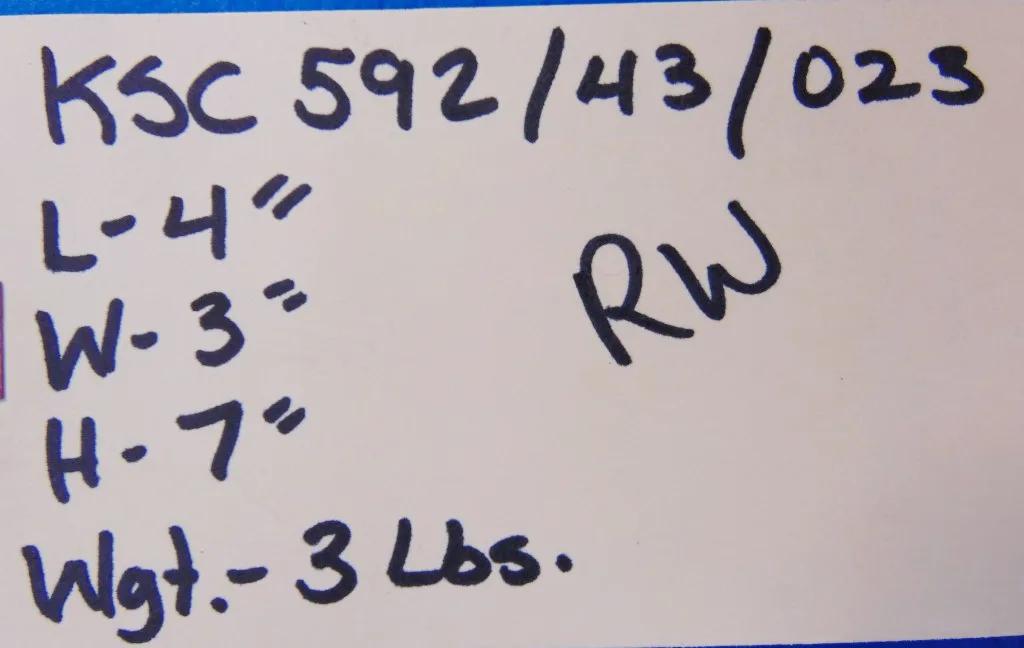 KSC 592/43/023
L-4"
RW
W-3"
H-7"
Wgt.-3 Lbs.